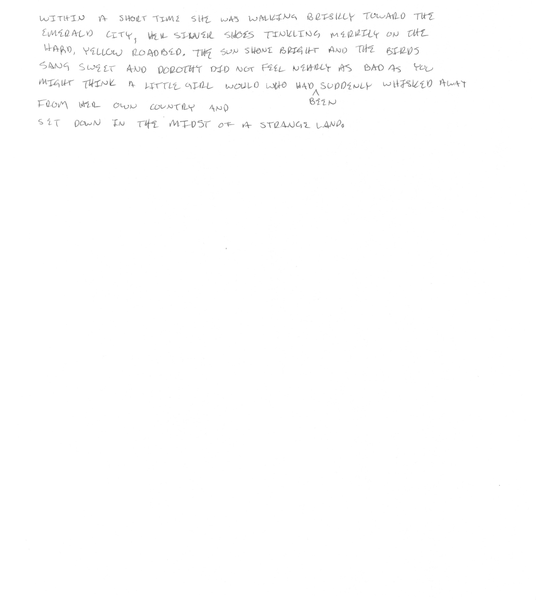 WITHIN A SHORT TIME SHE WAS WALKING BRISKLY TOWARD THE
EMERALD CITY, HER SILVER SHOES TINKLING MERRILY ON THE
HARD, YELLOW ROADBED. THE SUN SHONE BRIGHT AND THE BIRDS
SANG SWEET AND DOROTHY DID NOT FEEL NEARLY AS BAD AS YOU
MIGHT THINK A LITTLE GIRL WOULD WHO HAD SUDDENLY WHISKED AWAY
BEEN
FROM HER OWN COUNTRY AND
SET DOWN IN THE MIDST OF A STRANGE LAND.